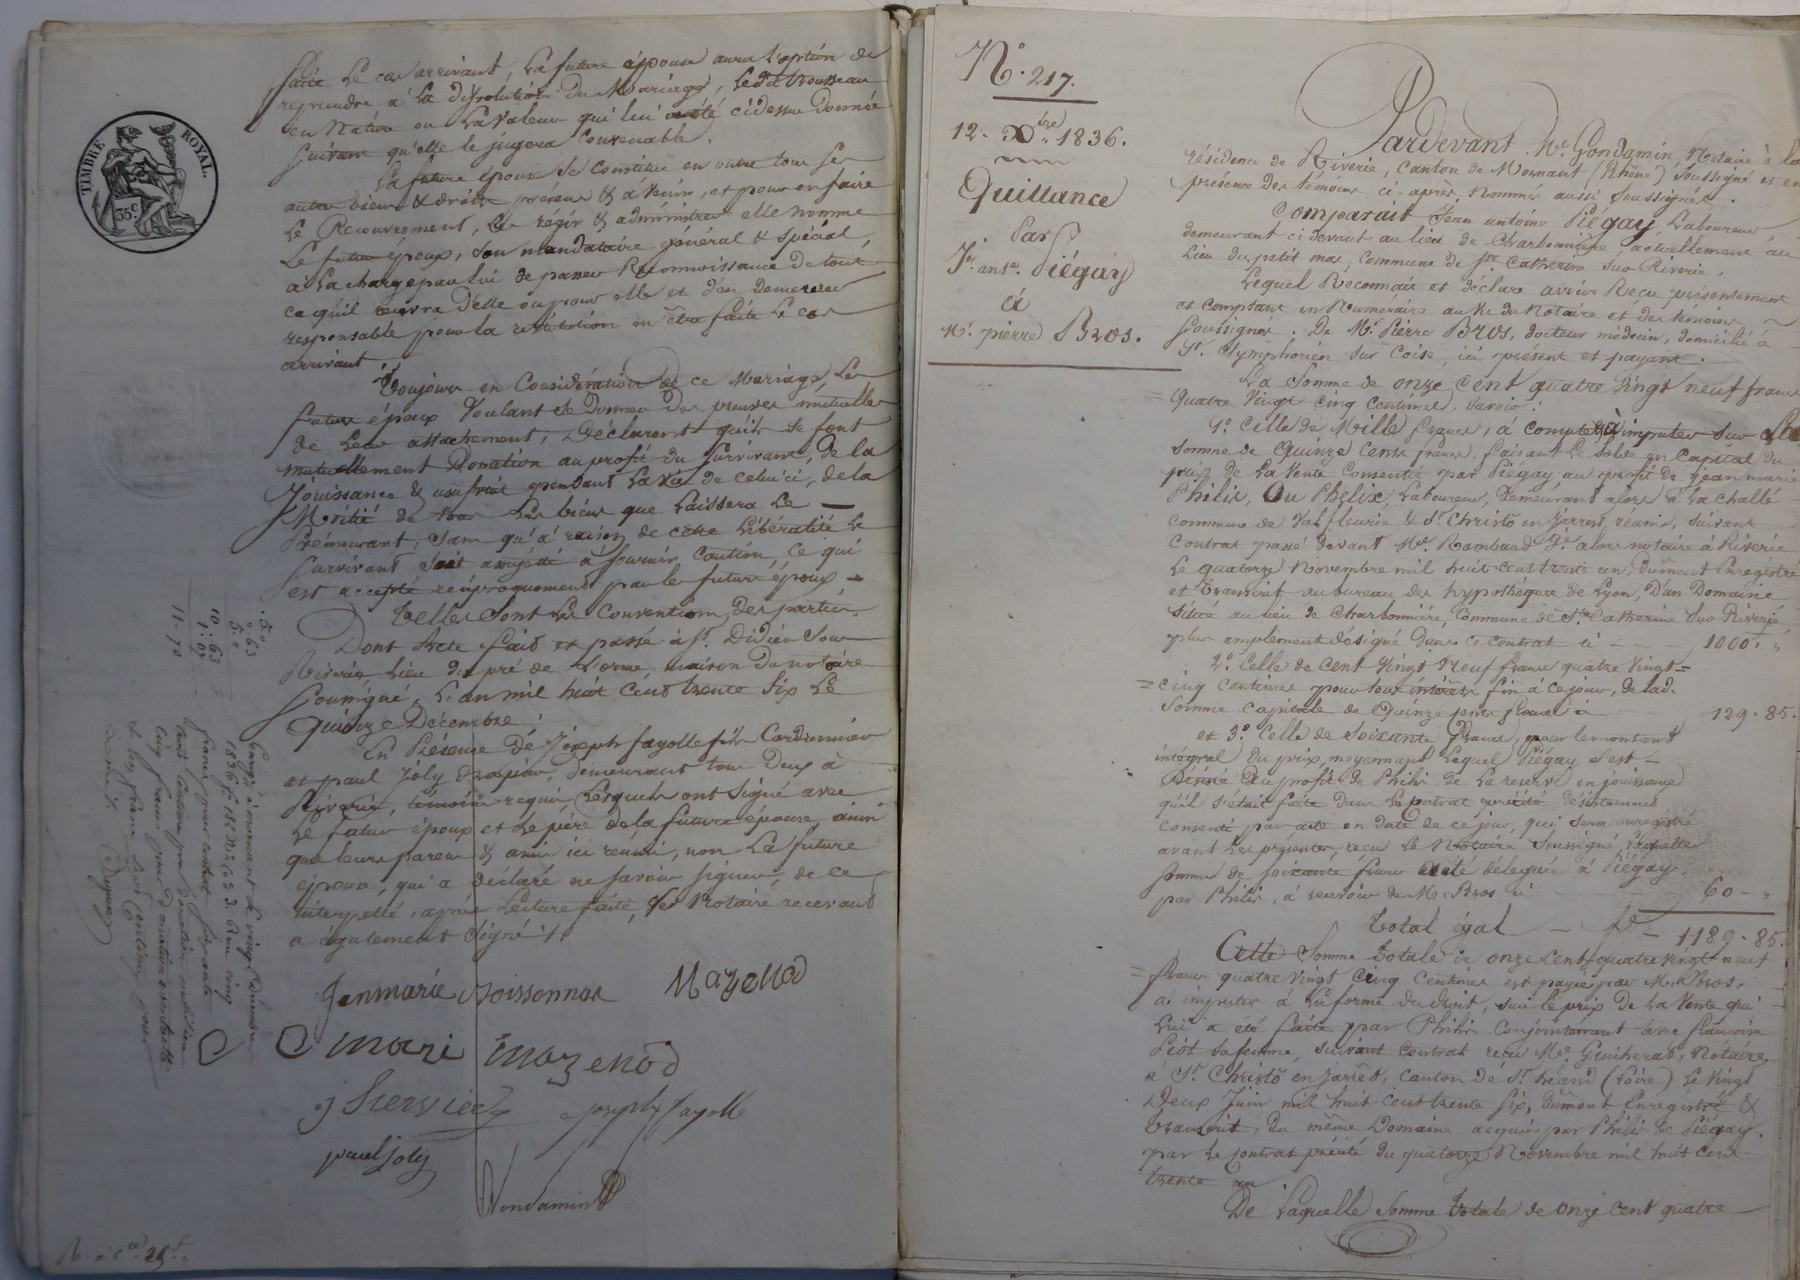 TIMBRE ROYAL.
35c
faite le cas arrivant, la future épouse aura l'option de
reprendre à la dissolution du Mariage, ledit trousseau
en Nature ou la valeur qui lui a été cidessus donnée
suivant qu'elle le jugera Convenable.
La future épouse se constitue en outre tous ses
autres biens & droits présens & à venir, et pour en faire
le Recouvrement, les régir & administrer elle nomme
le futur époux, son mandataire général & spécial,
à la charge par lui de passer Reconnaissance de tout
ce qu'il recevra d'elle ou pour elle et d'en demeurer
responsable pour la restitution en être faite le cas
arrivant.
Toujours en Considération de ce Mariage, les
futurs époux voulant se donner des preuves mutuelles
de leur attachement, déclarent qu'ils se font
mutuellement Donation au profit du survivant, de la
Jouissance & usufruit pendant la vie de celui ci, de la
Moitié de tous les biens que laissera le
Prémourant, sans qu'à raison de cette libéralité le
survivant soit assujetti à fournir caution, ce qui
est accepté réciproquement par les futurs époux
Telles sont les Conventions des parties.
Dont Acte fait et passé à St. Didier sous
Riverie, lieu du pré de Lorme, maison du notaire
soussigné, L'an mil huit cent trente six le
Quinze Décembre.
En Présence de Joseph fayolle fils Cordonnier
et paul Joly drapier, demeurant tous deux à
Riverie, témoins requis, lesquels ont signé avec
le futur époux et le père de la future épouse, ainsi
que leurs parens & amis ici réunis, non la future
épouse, qui a déclaré ne savoir signer, de ce
interpellé, après Lecture faite, le Notaire recevant
a également signé
Jenmarie Boissonnas Mazenod
mari mazenod
j Servie Joseph fayolle
paul joly
Gondamin
5. "
" 63
5. "
10. 63
1. 07
11. 70
Enregé à mornant le vingt Décembre
1836 fo 182 Reçu cinq
francs pour contrat
cinq francs pour donation éventuelle
Duguey
No. 217.
12. Xbre 1836.
Quittance
Par
Jn. ante. Piégay
à
Mr. pierre Bros.
Pardevant Me. Gondamin, Notaire à la
résidence de Riverie, Canton de Mornant (Rhône) soussigné et en
présence des témoins ci-après nommés aussi soussignés.
Comparait Jean antoine Piégay, Laboureur,
demeurant ci devant au lieu de Charbonnière actuellement au
lieu du petit mas, commune de Ste Catherine sur Riverie,
Lequel Reconnait et déclare avoir Reçu présentement
et comptant en Numéraire au vu du Notaire et des témoins
soussignés. De Mr. Pierre Bros, docteur médecin, domicilié à
St. Symphorien sur Coise, ici présent et payant.
La Somme de onze cent quatre vingt neuf francs
quatre vingt cinq centimes, savoir:
1o. Celle de Mille francs, à compte & à imputer sur la
somme de Quinze Cents francs, faisant le solde en Capital du
prix de la vente consentie par Piégay au profit de jean marie
Philis, Ou Phelix, Laboureur, demeurant alors à la challé
commune de Valfleurie & St. Christô en Jarrest, réunis, suivant
contrat passé devant Me. Rambaud je. alors notaire à Riverie
le quatorze Novembre mil huit cent trente un, dûment Enregistré
et Transcrit au bureau des hypothèques de Lyon, d'un Domaine
situé au lieu de Charbonnière, Commune de Ste. Catherine sur Riverie,
plus amplement désigné dans ce contrat ci - - - 1000. "
2o. Celle de cent vingt neuf francs quatre vingt-
cinq centimes pour tous intérêts fin à ce jour, de lad.
somme capitale de Quinze cents francs ci 129. 85.
et 3o. Celle de soixante francs, pour le montant
intégral du prix, moyennant lequel Piégay s'est
démis au profit de Philis de la réserve en jouissance
qu'il s'était faite dans le contrat précité
consenti par acte en date de ce jour, qui sera enregistré
avant les présentes, reçu le Notaire soussigné, laquelle
somme de soixante francs a été déléguée à Piégay
par Philis, à recevoir de Mr. Bros ci 60 - "
Total égal - fs - 1189. 85.
Cette Somme totale de onze cent quatre vingt neuf
francs quatre vingt cinq centimes est payée par Mr. Bros,
à imputer à la forme du droit, sur le prix de la vente qui
lui a été faite par Philis conjointement avec françoise
Piot sa femme, suivant contrat reçu Me. Guicherat, Notaire
à St. Christô en jarrêt, canton de St. héand (Loire) le vingt
Deux Juin mil huit cent trente six, dûment Enregistré &
transcrit, du même Domaine acquis par Philis de Piégay
par le contrat précité du quatorze Novembre mil huit cent
trente un.
De Laquelle somme totale de onze cent quatre